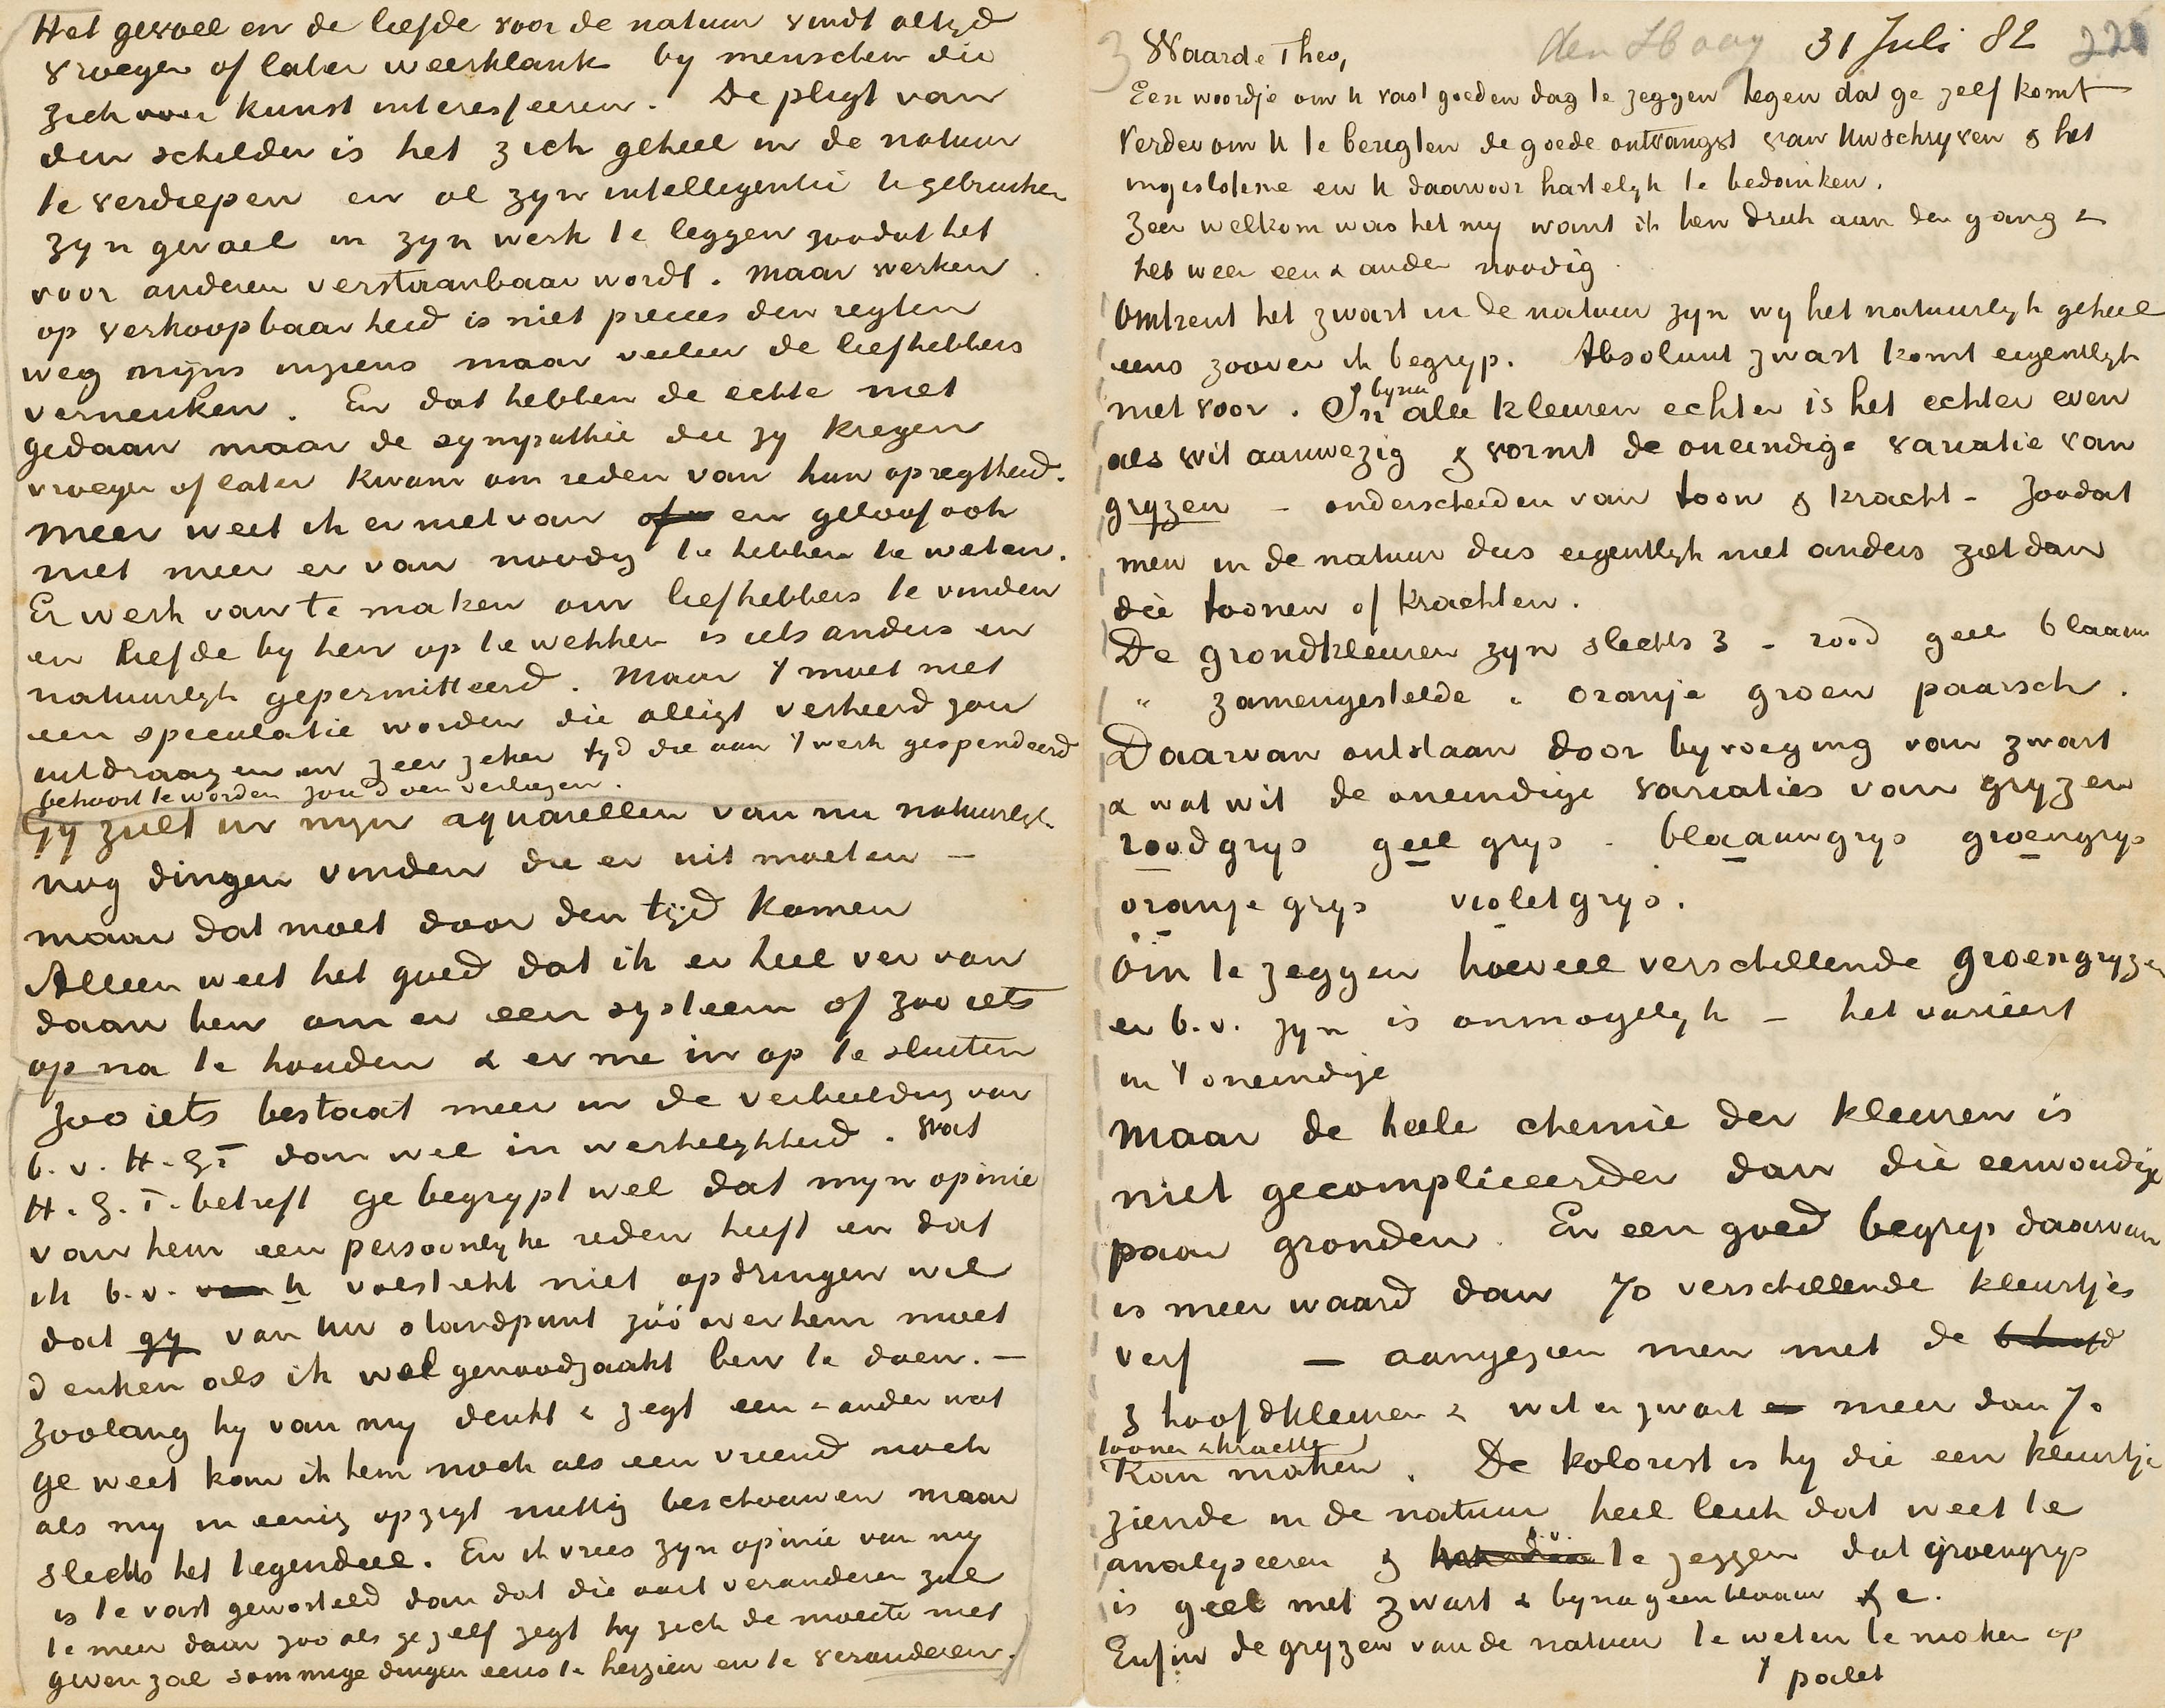 Het gevoel en de liefde voor de natuur vindt altyd
vroeger of later weerklank by menschen die
zich voor kunst interesseeren. De pligt van
den schilder is het zich geheel in de natuur
te verdiepen en al zyn intelligentie te gebruiken
zyn gevoel in zyn werk te leggen zoodat het
voor anderen verstaanbaar wordt. Maar werken
op verkoopbaarheid is niet precies den regten
weg myns inziens maar veeleer de liefhebbers
verneuken. En dat hebben de echte niet
gedaan maar de sympathie die zy kregen
vroeger of later kwam om reden van hun opregtheid.
Meer weet ik er niet van en geloof ook
niet meer er van noodig te hebben te weten.
Er werk van te maken om liefhebbers te vinden
en liefde by hen op te wekken is iets anders en
natuurlyk gepermitteerd. Maar 't moet niet
een speculatie worden die alligt verkeerd zou
uitdraayen en zeer zeker tyd die aan 't werk gespendeerd
behoort te worden zou doen verliezen.
Gy zult in myn aquarellen van nu natuurlyk
nog dingen vinden die er uit moeten —
maar dat moet door den tijd komen
Alleen weet het goed dat ik er heel ver van
daan ben om er een systeem of zoo iets
op na te houden & er me in op te sluiten
Zoo iets bestaat meer in de verbeelding van
b.v. H.G.T. dan wel in werkelykheid. Wat
H.G.T. betreft ge begrypt wel dat myn opinie
van hem een persoonlyke reden heeft en dat
ik b.v. van u volstrekt niet opdringen wil
dat gy van Uw standpunt zóó over hem moet
denken als ik wel genoodzaakt ben te doen. —
Zoolang hy van my denkt & zegt een & ander wat
ge weet kan ik hem noch als een vriend noch
als my in eenig opzigt nuttig beschouwen maar
slechts het tegendeel. En ik vrees zyn opinie van my
is te vast geworteld dan dat die ooit veranderen zal
te meer daar zoo als ge zelf zegt hy zich de moeite niet
geven zal sommige dingen eens te herzien en te veranderen.
den Haag 31 Juli 82 221
3 Waarde Theo,
Een woordje om U vast goeden dag te zeggen tegen dat ge zelf komt
Verder om U te berigten de goede ontvangst van Uw schryven & het
ingeslotene en U daarvoor hartelyk te bedanken.
Zeer welkom was het my want ik ben druk aan den gang &
heb weer een & ander noodig.
Omtrent het zwart in de natuur zyn wy het natuurlyk geheel
eens zoover ik begryp. Absoluut zwart komt eigentlyk
niet voor. In byna alle kleuren echter is het echter even
als wit aanwezig & vormt de oneindige variatie van
gryzen — onderscheiden van toon & kracht — Zoodat
men in de natuur dus eigentlyk niet anders ziet dan
die toonen of krachten.
De grondkleuren zyn slechts 3 — rood geel blaauw
" zamengestelde " oranje groen paarsch.
Daarvan ontstaan door byvoeging van zwart
& wat wit de oneindige variaties van gryzen
roodgrys geelgrys . blaauwgrys groengrys
oranjegrys violetgrys.
Om te zeggen hoeveel verschillende groengryzen
er b.v. zyn is onmogelyk — het varieert
in 't oneindige
Maar de heele chemie der kleuren is
niet gecompliceerder dan die eenvoudige
paar gronden. En een goed begrip daarvan
is meer waard dan 70 verschillende kleurtjes
verf — aangezien men met de
3 hoofdkleuren & wit en zwart meer dan 70
toonen & krachten
kan maken. De kolorist is hy die een kleurtje
ziende in de natuur heel leuk dat weet te
analyseeren & b.v. te zeggen dat groengrys
is geel met zwart & byna geen blaauw &c.
Enfin de gryzen van de natuur te weten te maken op
't palet